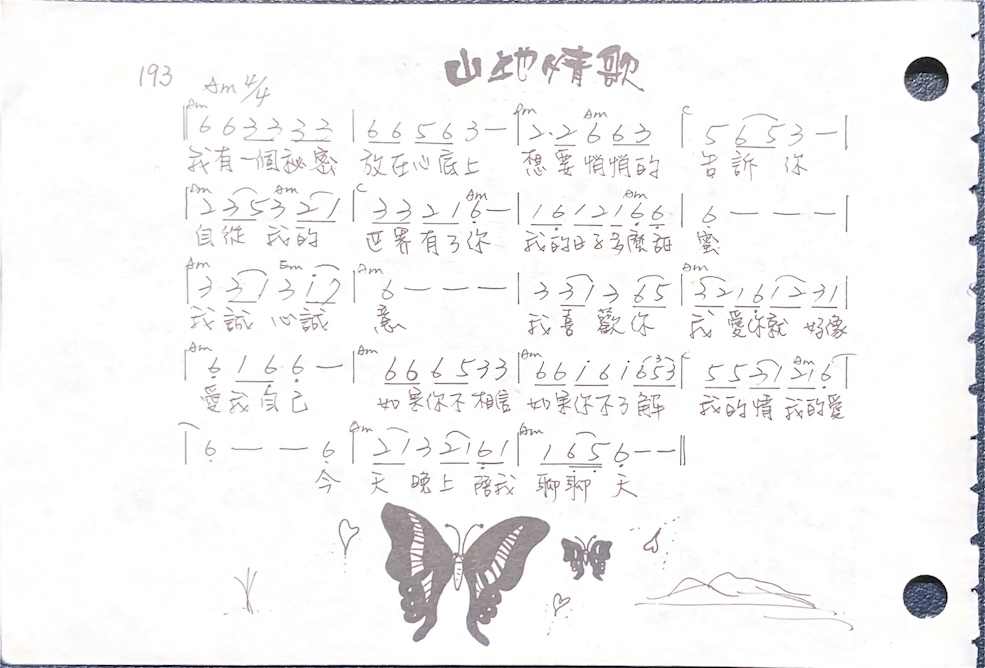 山地情歌
193 Am 4/4
Am
‖ 6 6 3 3 3 3 | 6 6 5 6 3 — | 2· 2 6 6 3 | 5 6 5 3 — |
我有一個祕密 放在心底上 想要悄悄的 告訴你
| 2 3 5 3 2 1 | 3 3 2 1 6 — | 1 6 1 2 1 6 6 | 6 — — — |
自從 我的 世界有了你 我的日子多麼甜 蜜
| 3 2 1 3 1 7 | 6 — — — | 3 3 1 3 6 5 | 3 2 1 6 1 2 3 1 |
我誠 心誠 意 我喜 歡你 我 愛你就 好像
| 6 1 6 6 — | 6 6 6 5 3 3 | 6 6 i 6 i 6 5 3 | 5 5 2 1 2 1 6 |
愛我自己 如果你不相信 如果你不了解 我的情 我的愛
| 6 — — 6 | 2 1 3 2 1 6 1 | 1 6 5 6 — — ‖
今 天 晚上 陪我 聊聊 天